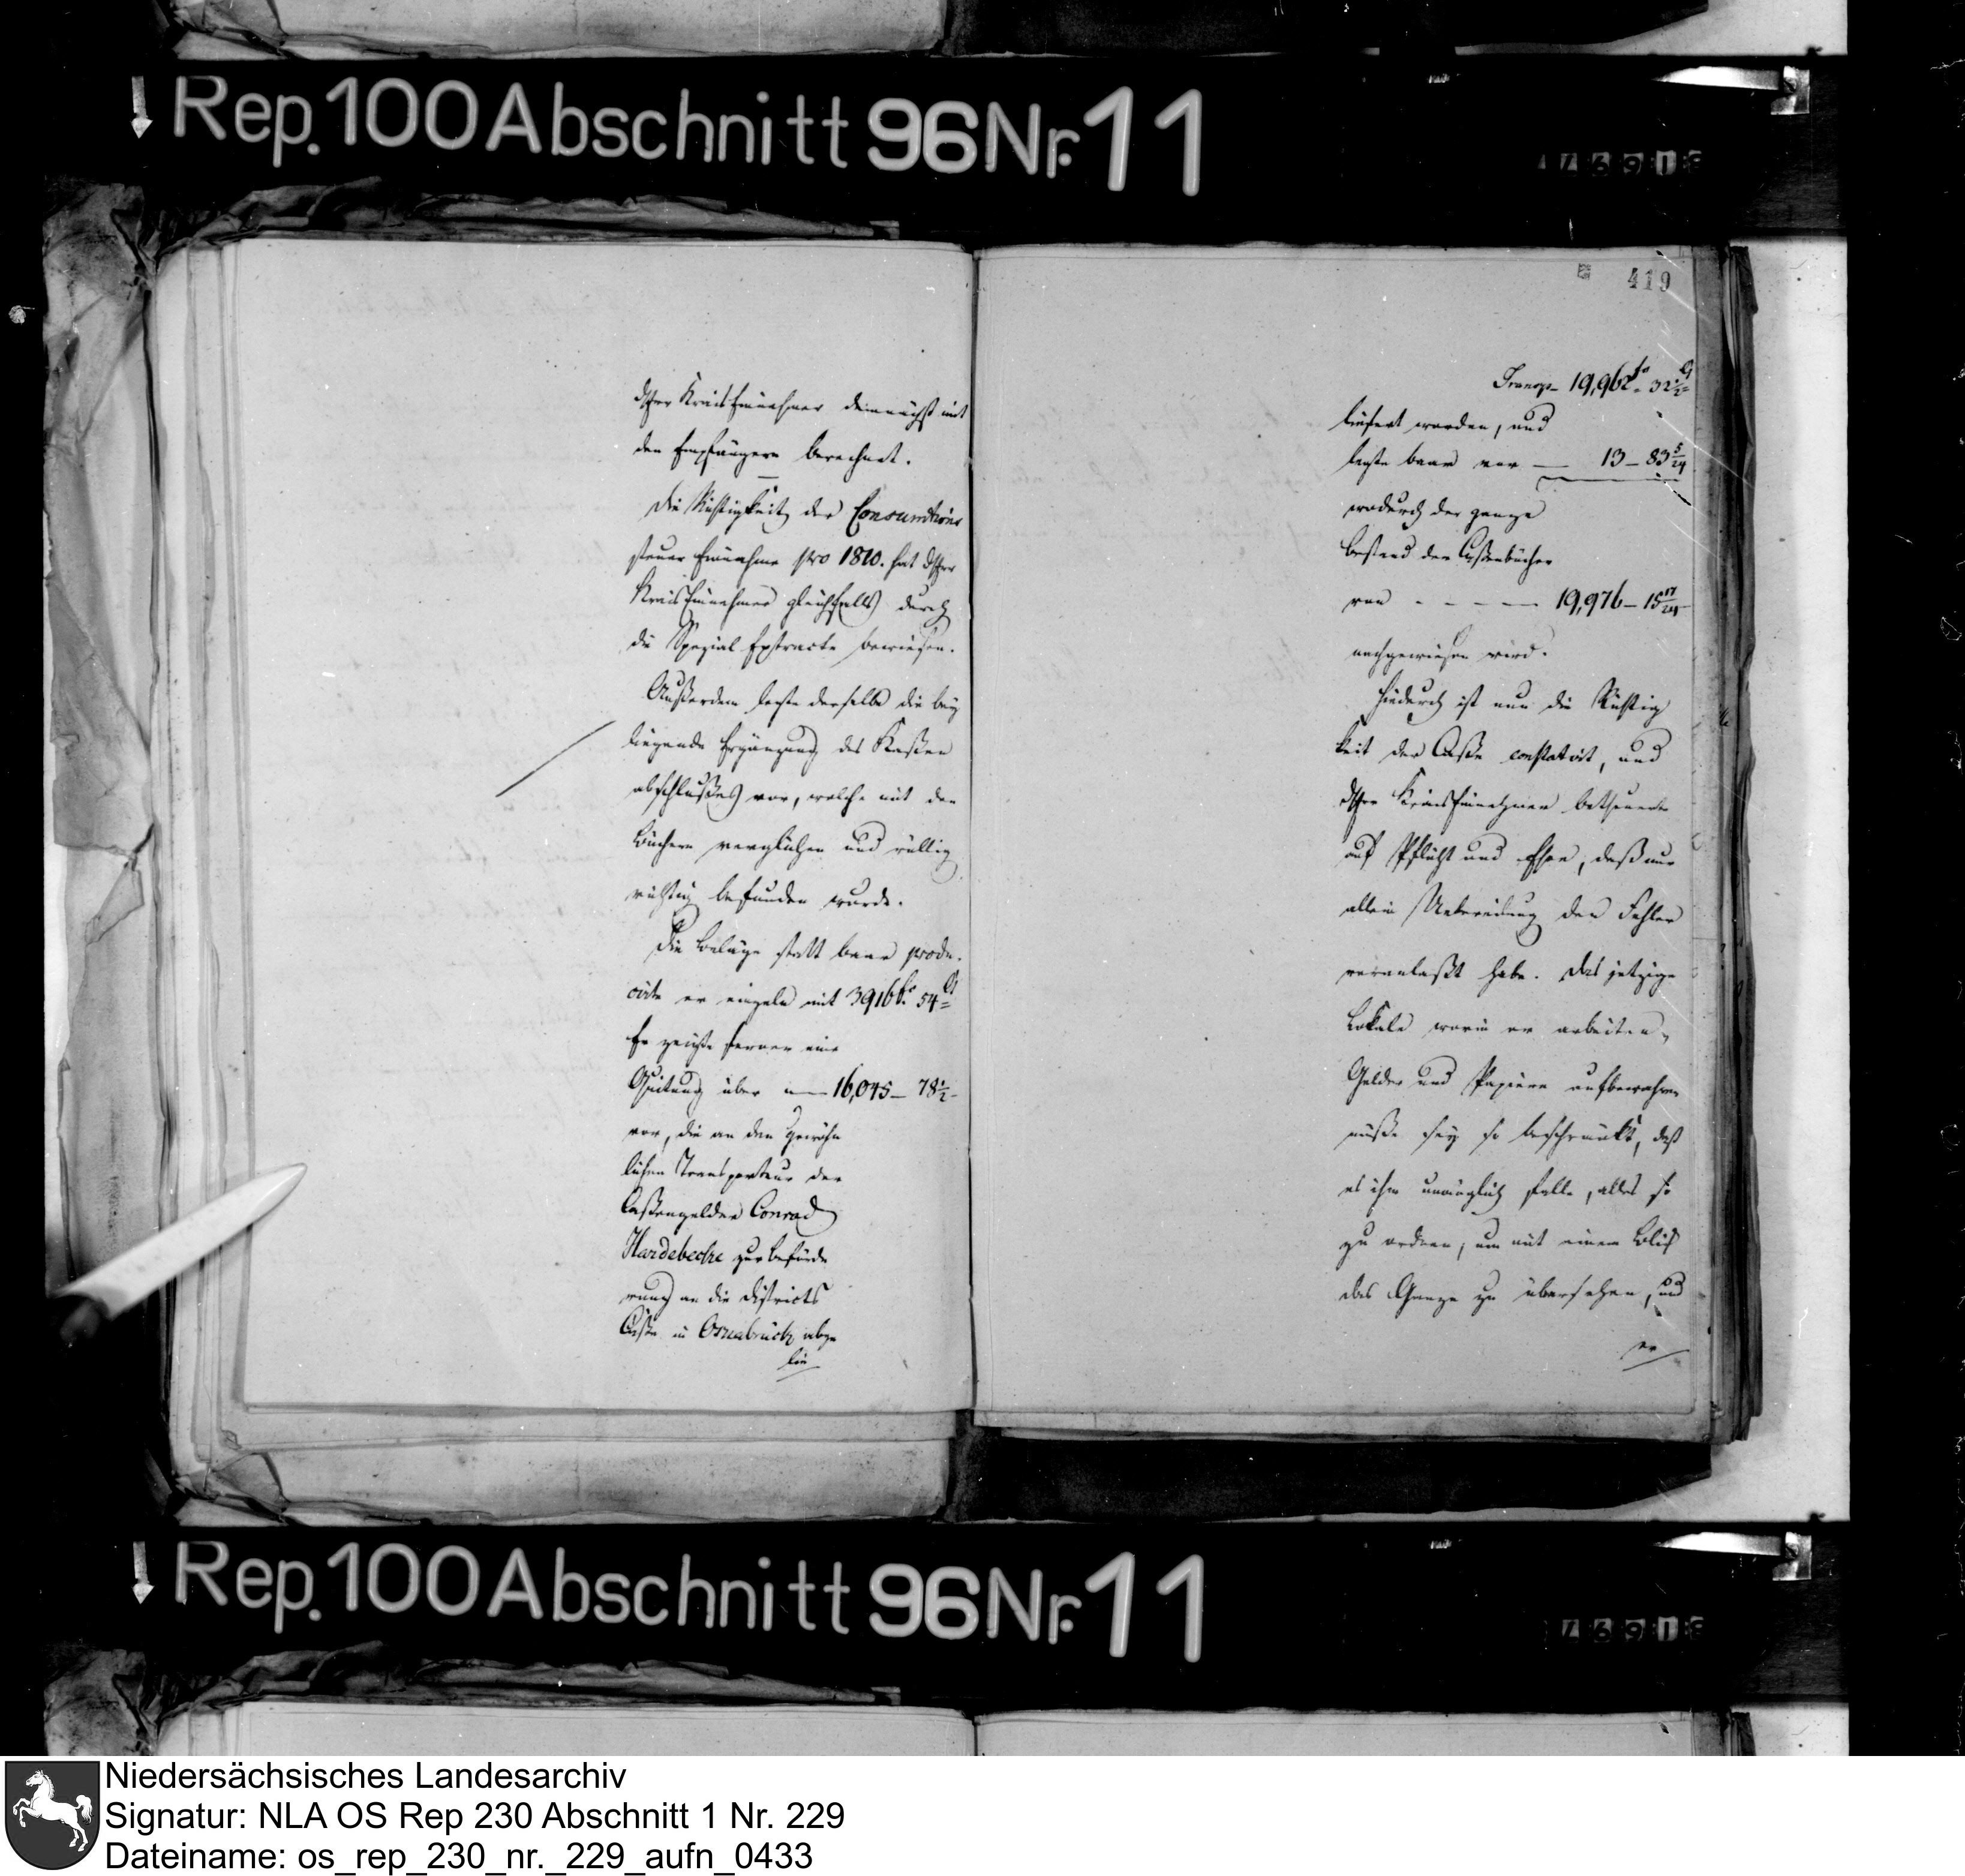 Rep. 100 Abschnitt 96 Nr. 11
dHerr Kreis Einnehmer demnächst mit
den Empfängern berechnet.
Die Richtigkeit der Consumtions
steuer Einnahme pro 1810. hat dHerr
Kreis Einnehmer gleichfalls durch
die Spezial Extracte bewiesen.
Außerdem legte derselbe die bey
liegende Ergänzung des Kaßen
abschlußes vor, welche mit den
Büchern verglichen und völlig
richtig befunden wurde.
Die Beläge statt baar produ-
cirte er einzeln mit 3916 fr. 54 Ct
Er zeigte ferner eine
Quitung über — 16,045 — 78 1/2 -
vor, die an den gewöhn
lichen Transporteur der
Caßengelder Conrad
Hardebecke zur Beförde
rung an die Districts
Caße in Osnabrück abge
lie
419
Transp. 19,962 fr. 32 1/2 Ct
liefert worden, und
legte baar vor — 13 — 83 5/24
wodurch der ganze
Bestand der Caßenbücher
von - - - — 19,976 — 15 17/24
nachgewiesen wird.
Hiedurch ist nun die Richtig
keit der Caße constatirt, und
dHerr Kreis Einnehmer betheuerte
auf Pflicht und Ehre, daß nur
allein Uebereilung den Fehler
veranlaßt habe. Das jetzige
Lokale worin er arbeiten,
Gelder und Papiere aufbewahren
müße sey so beschränkt, daß
es ihm unmöglich falle, alles so
zu ordnen, um mit einem Blick
das Ganze zu übersehen, und
er
Rep. 100 Abschnitt 96 Nr. 11
Niedersächsisches Landesarchiv
Signatur: NLA OS Rep 230 Abschnitt 1 Nr. 229
Dateiname: os_rep_230_nr._229_aufn_0433